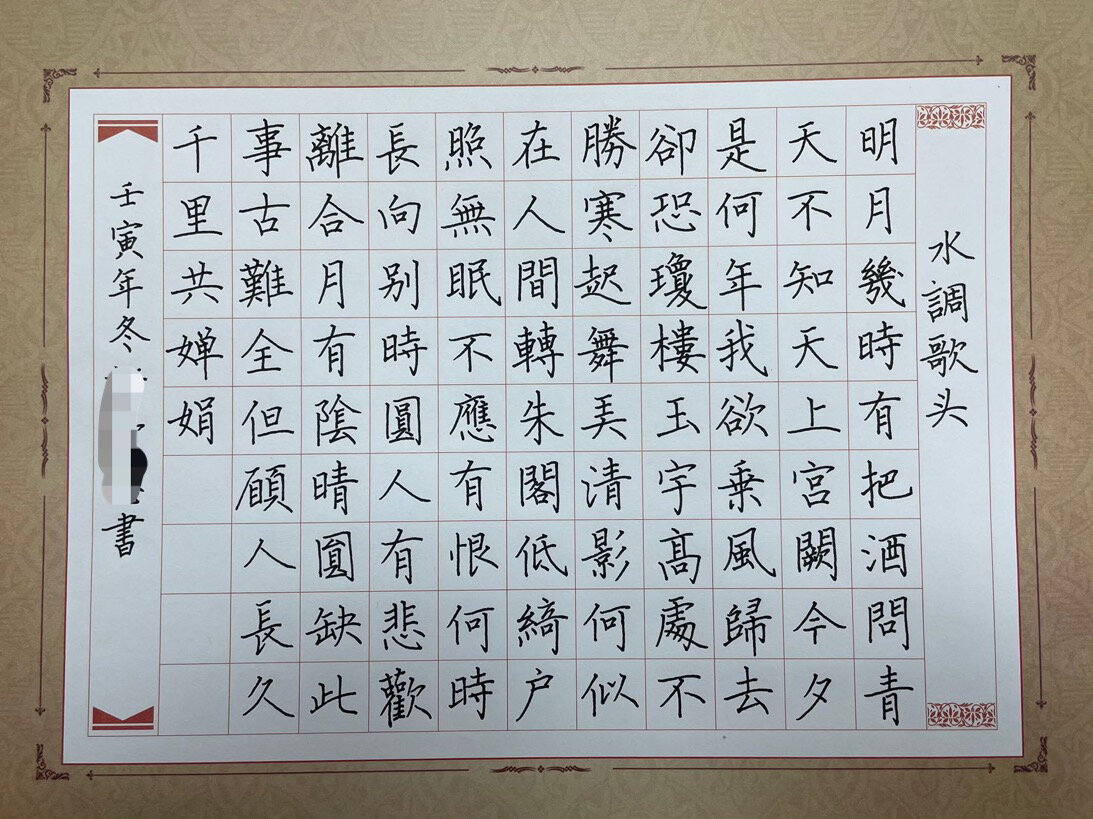 水調歌头
明月幾時有把酒問青
天不知天上宮闕今夕
是何年我欲乗風歸去
卻恐瓊樓玉宇高處不
勝寒起舞弄清影何似
在人間轉朱閣低綺户
照無眠不應有恨何時
長向别時圓人有悲歡
離合月有陰晴圓缺此
事古難全但願人長久
千里共婵娟
壬寅年冬
書